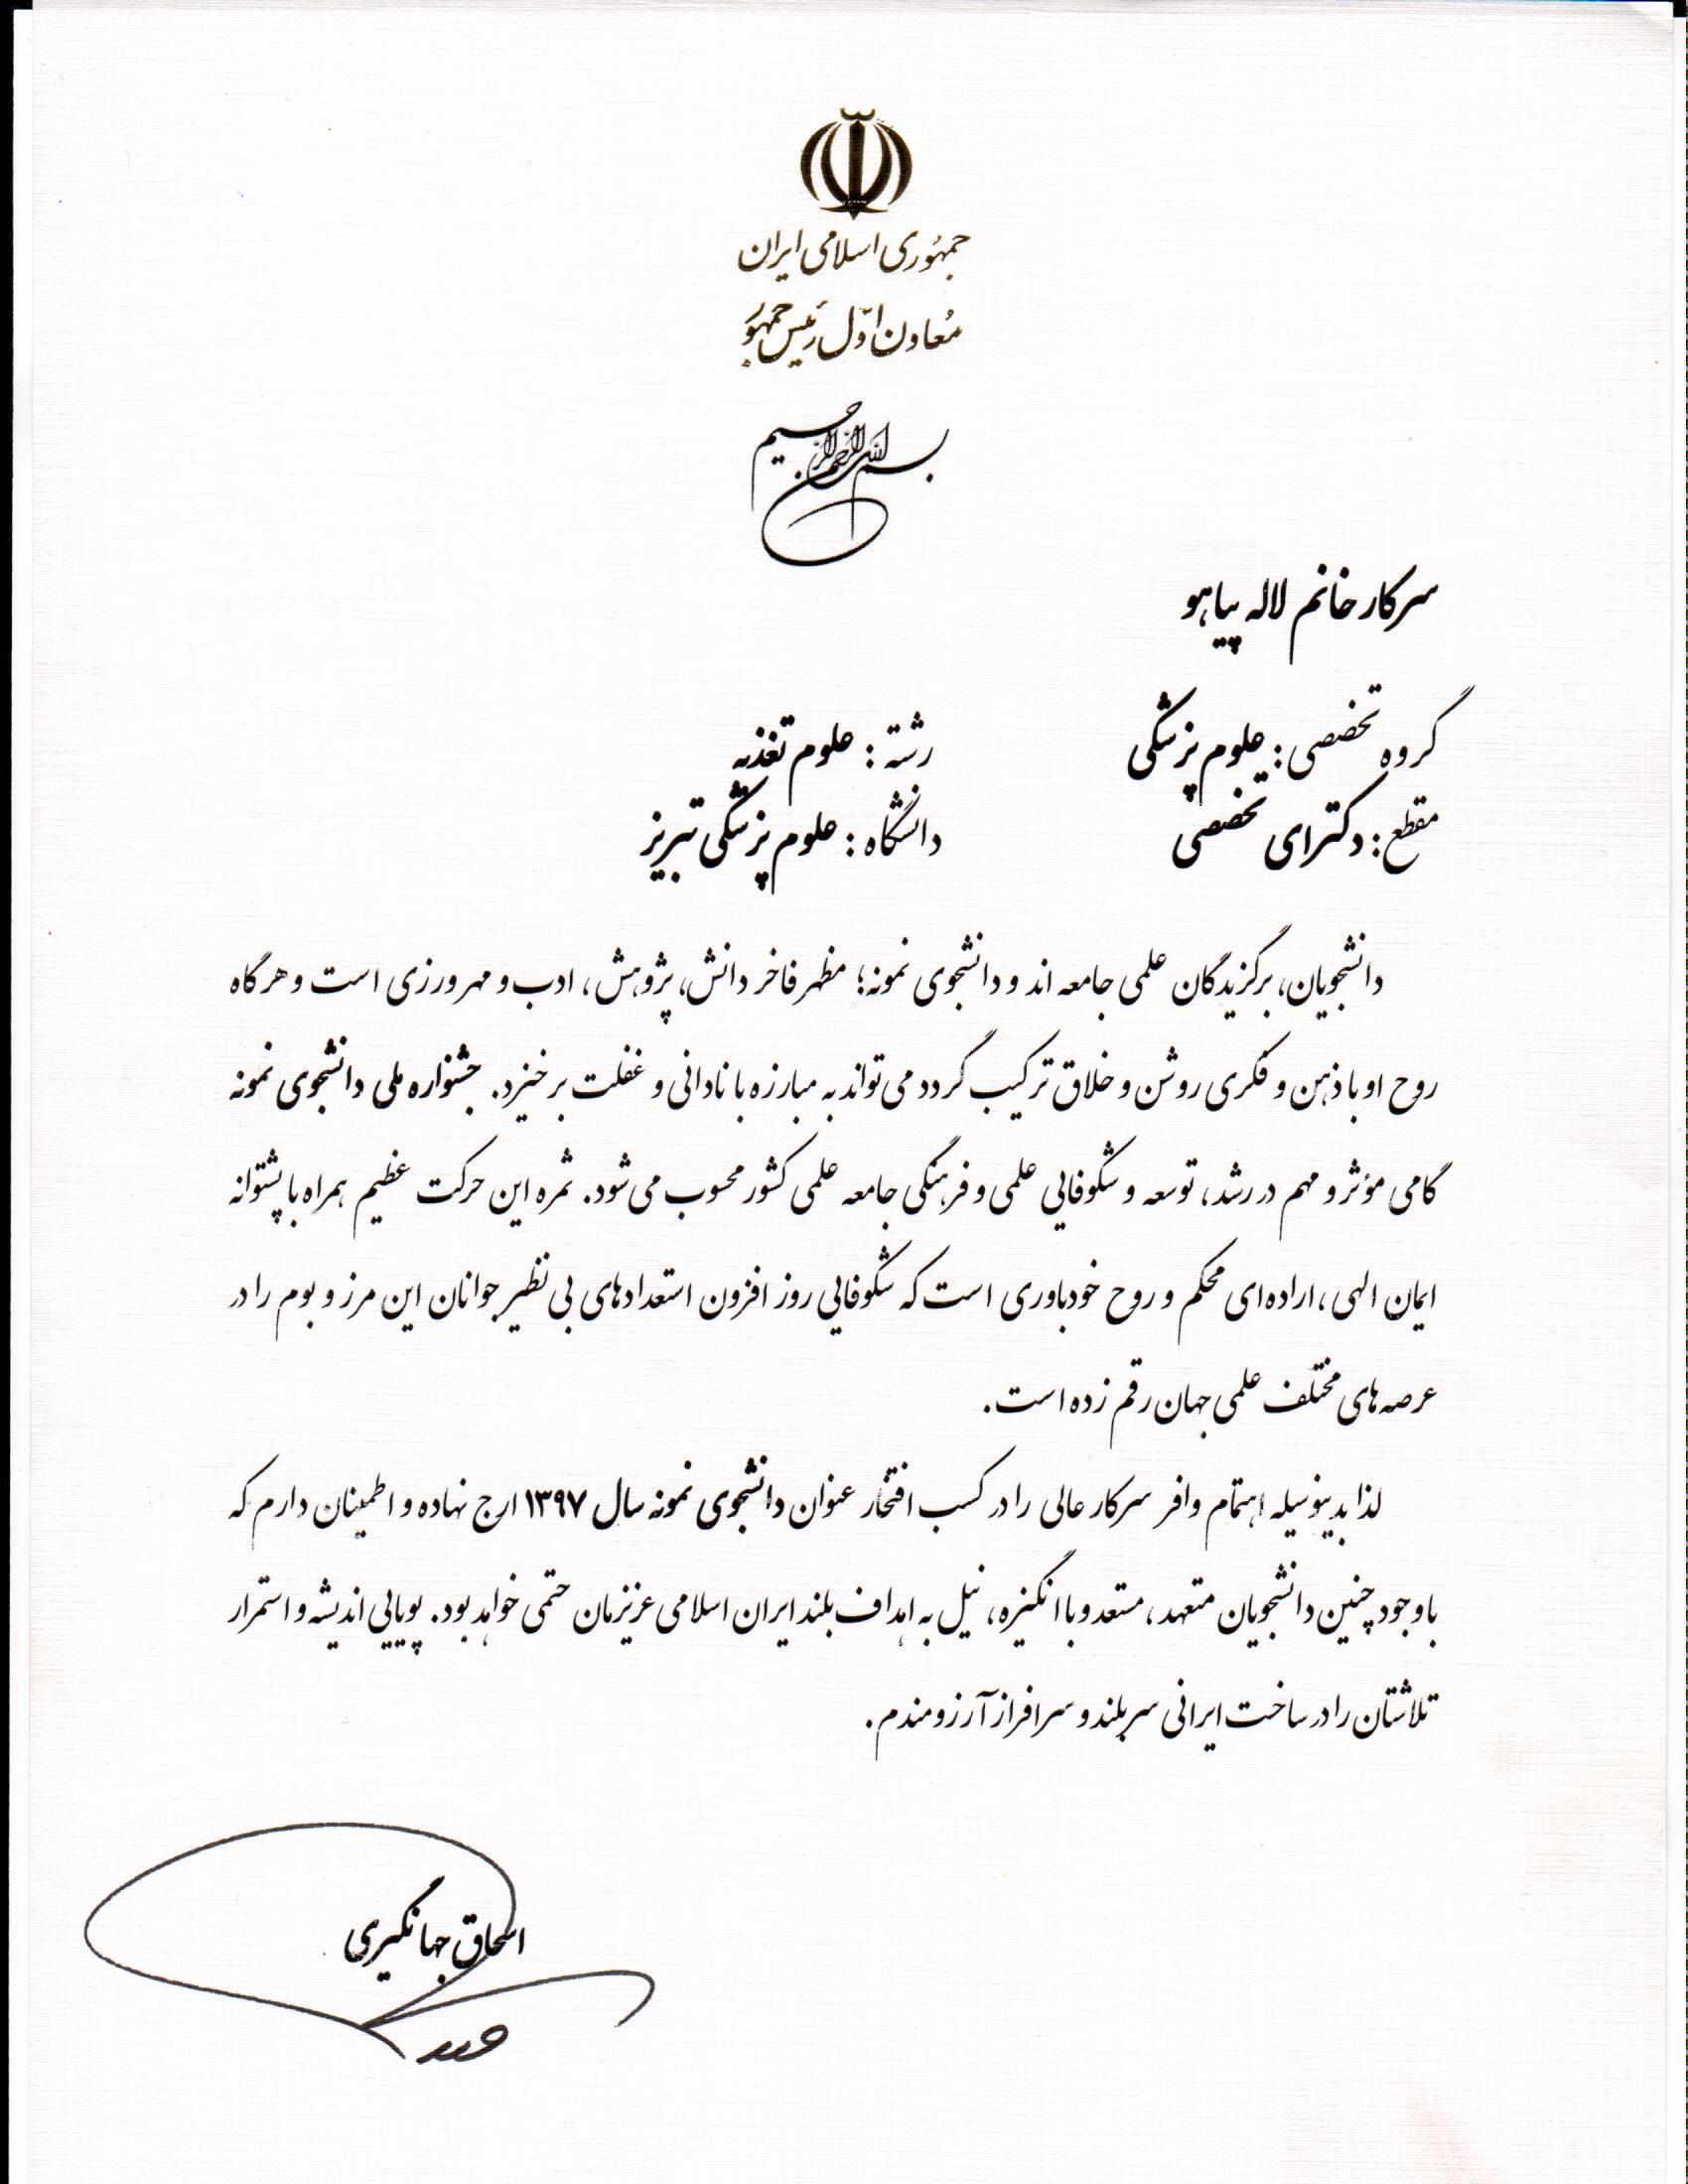 جمهوری اسلامی ایران
معاون اول رئیس جمهور
بسم الله الرحمن الرحیم
سرکار خانم لاله پیاهو
گروه تخصصی: علوم پزشکی رشته : علوم تغذیه
مقطع: دکترای تخصصی دانشگاه : علوم پزشکی تبریز
دانشجویان، برگزیدگان علمی جامعه اند و دانشجوی نمونه؛ مظهر فاخر دانش، پژوهش، ادب و مهرورزی است و هرگاه
روح او با ذهن و فکری روشن و خلاق ترکیب گردد می تواند به مبارزه با نادانی و غفلت برخیزد. جشنواره ملی دانشجوی نمونه
گامی مؤثر و مهم در رشد، توسعه و شکوفایی علمی و فرهنگی جامعه علمی کشور محسوب می شود. ثمره این حرکت عظیم همراه با پشتوانه
ایمان الهی، اراده ای محکم و روح خودباوری است که شکوفایی روز افزون استعدادهای بی نظیر جوانان این مرز و بوم را در
عرصه های مختلف علمی جهان رقم زده است.
لذا بدینوسیله اهتمام وافر سرکار عالی را در کسب افتخار عنوان دانشجوی نمونه سال ۱۳۹۷ ارج نهاده و اطمینان دارم که
با وجود چنین دانشجویان متعهد، مستعد و با انگیزه، نیل به اهداف بلند ایران اسلامی عزیزمان حتمی خواهد بود. پویایی اندیشه و استمرار
تلاشتان را در ساخت ایرانی سربلند و سرافراز آرزومندم.
اسحاق جهانگیری